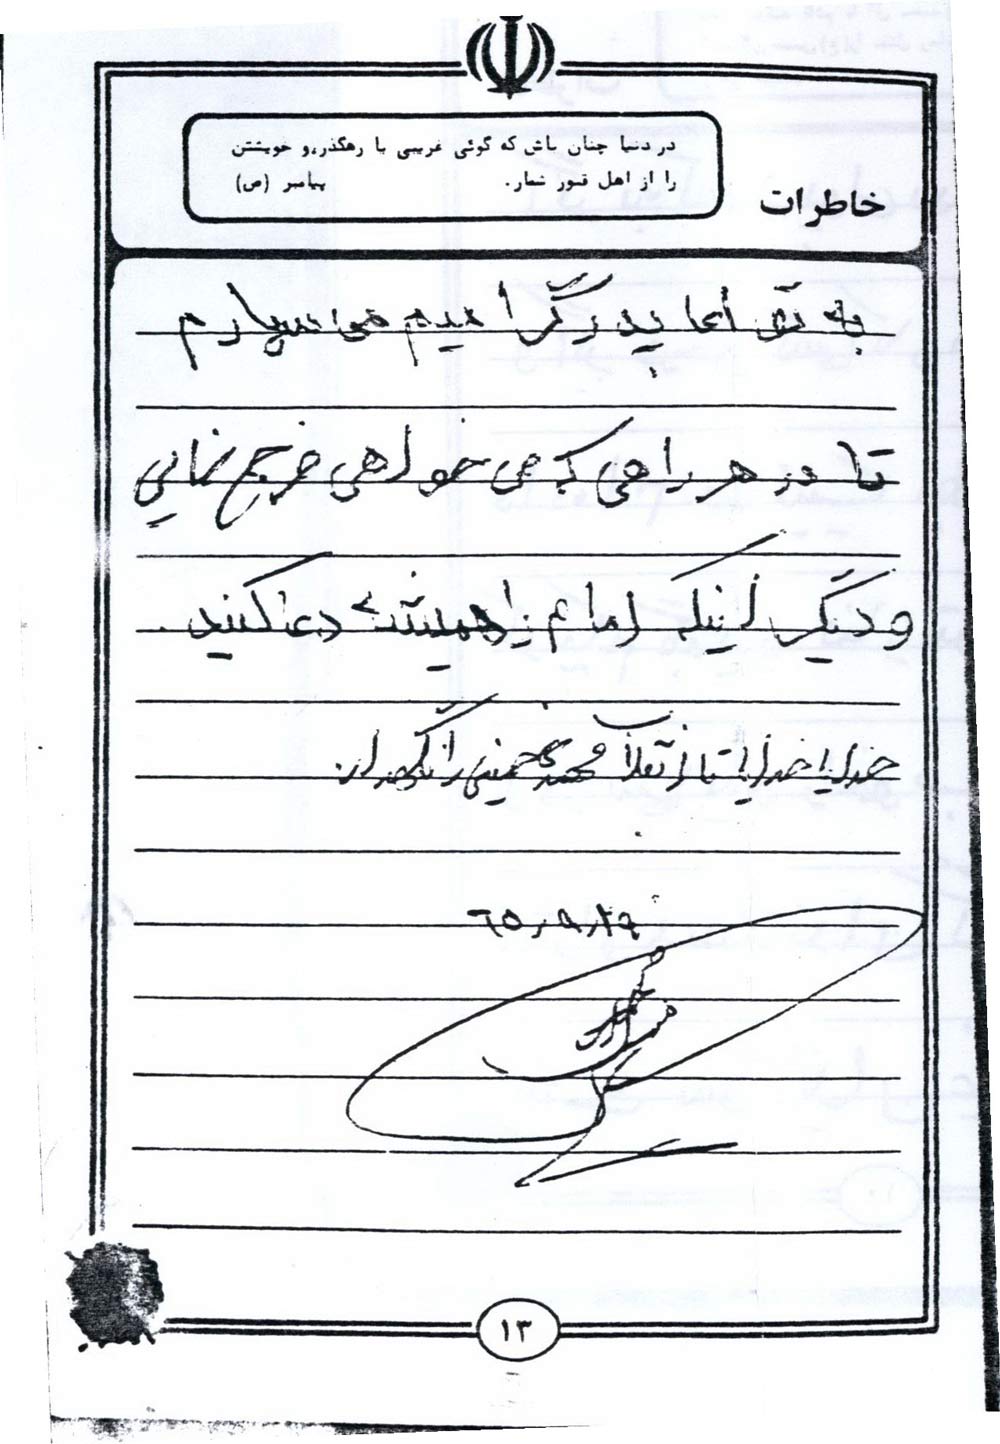 در دنیا چنان باش که گوئی غریبی یا رهگذر،و خویشتن
را از اهل قبور شمار. پیامبر (ص)
خاطرات
به تو ای پدر گرامیم می سپارم
تا در هر راهی که می خواهی خرج نمایی
و دیگر اینکه امام را همیشه دعا کنید.
خدایا خدایا تا انقلاب مهدی خمینی را نگهدار.
۶۵٫۹٫۲۹
۱۳